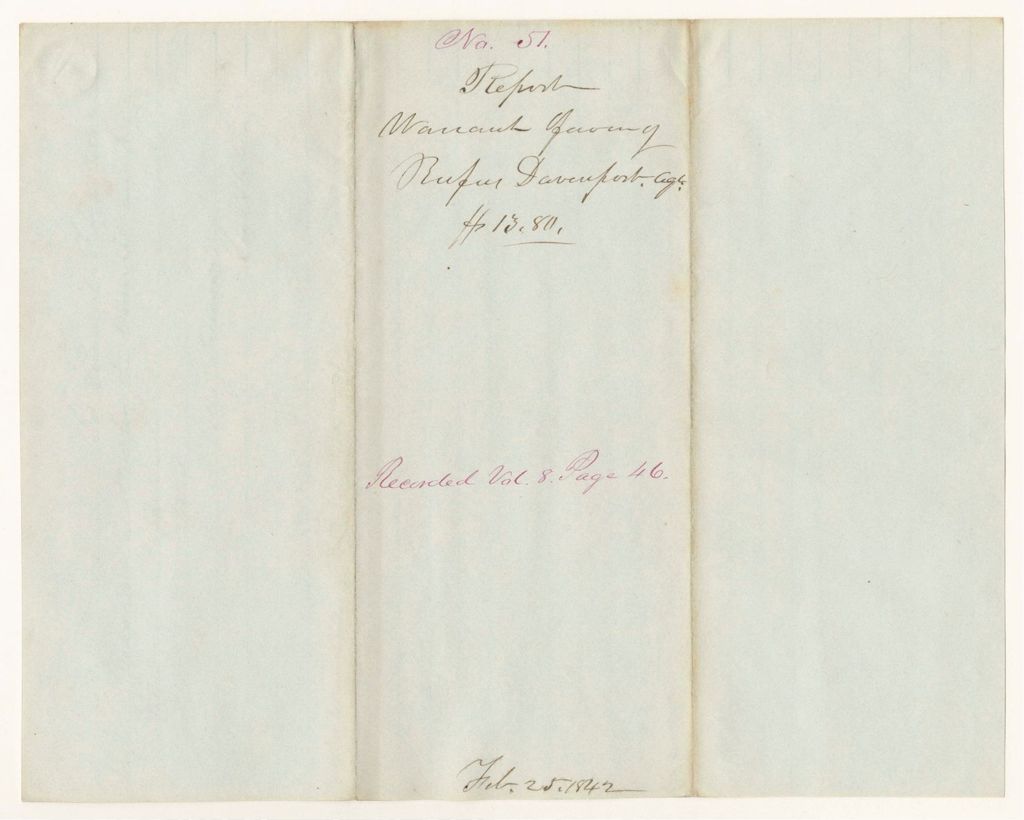 No. 51.
Report
Warrant favoring
Rufus Davenport. Agt.
$13.80.
Recorded Vol. 8. Page 46.
Feb. 25. 1842